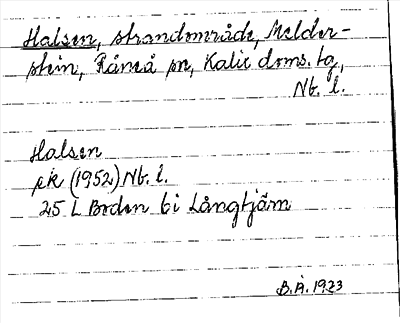 Halsen, strandområde, Melder-
stein, Råneå sn, Kalix doms. tg,
Nb. l.
Halsen
ek (1952) Nb. l.
25 L Boden 6i Långtjärn
B.Å. 1923